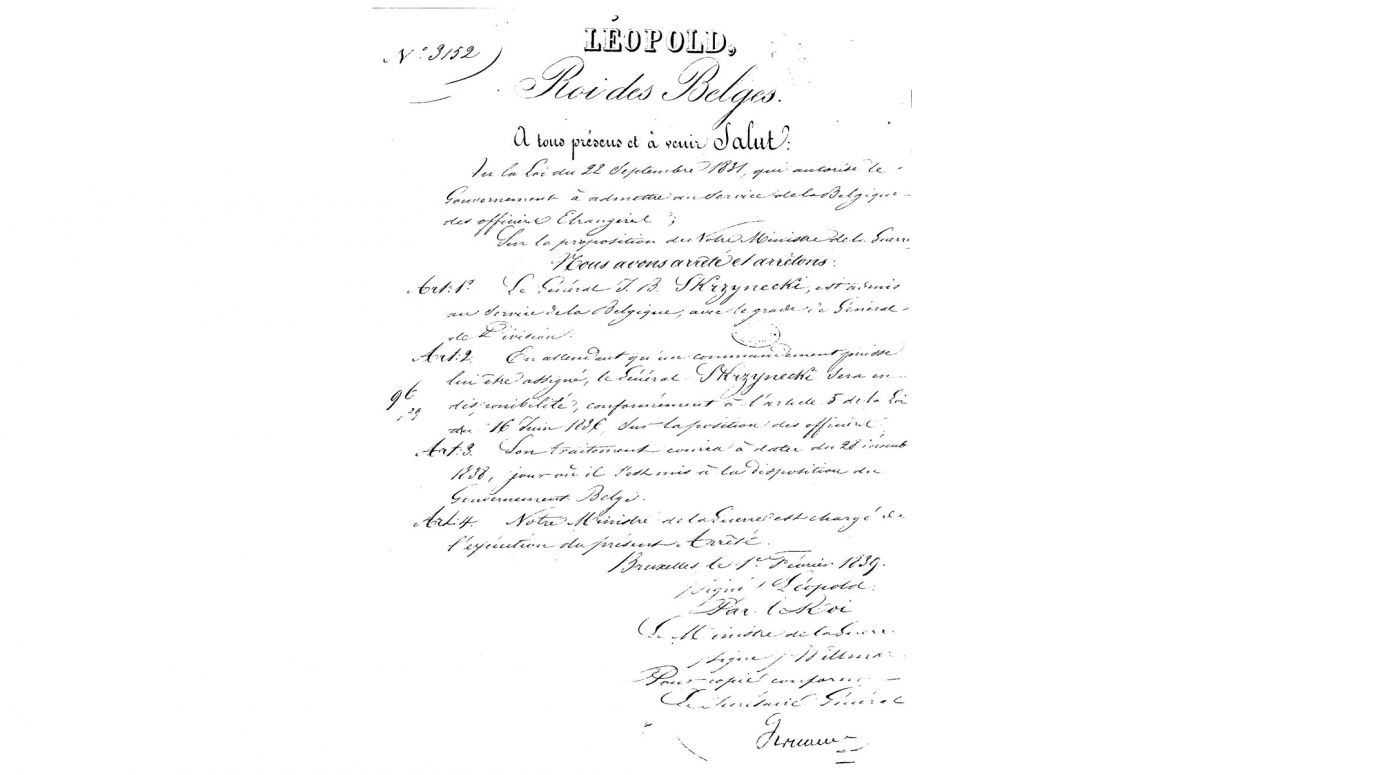 LÉOPOLD,
N° 3152
Roi des Belges.
A tous présens et à venir Salut:
Vu la Loi du 22 Septembre 1831, qui autorise le
Gouvernement à admettre au Service de la Belgique
des officiers Etrangers;
Sur la proposition de Notre Ministre de la Guerre
Nous avons arrêté et arrêtons:
Art: 1er Le Général J. B. Skrzynecki, est admis
au Service de la Belgique, avec le grade de Général
de Division.
Art: 2. En attendant qu'un commandement puisse
lui être assigné, le Général Skrzynecki sera en
disponibilité, conformément à l'article 5 de la Loi
du 16 Juin 1836, sur la position des officiers
Art: 3. Son traitement courra à dater du 28 décemb
1838, jour où il s'est mis à la disposition du
Gouvernement Belge.
Art: 4. Notre Ministre de la Guerre est chargé de
l'exécution du présent Arrêté.
Bruxelles le 1er Février 1839.
signé Léopold.
Par le Roi
Le Ministre de la Guerre
signé Willmar
Pour copie conforme
Le Secrétaire Général